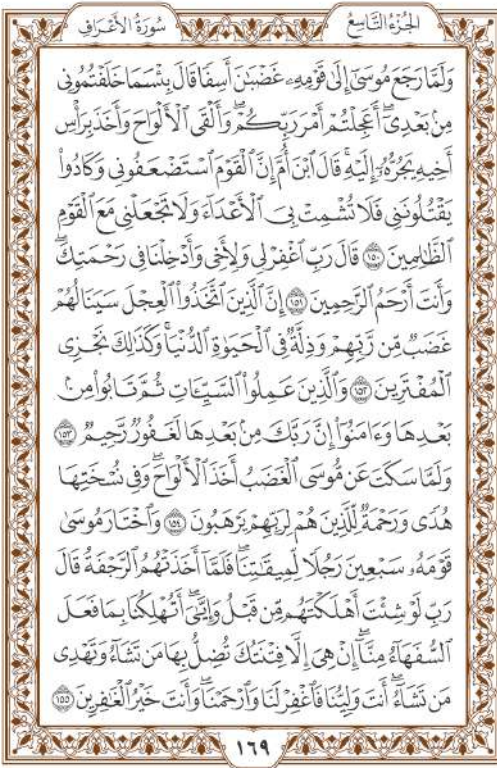 الجُزْءُ التَّاسِعُ
سُورَةُ الأَعْرَافِ
وَلَمَّا رَجَعَ مُوسَىٰٓ إِلَىٰ قَوْمِهِۦ غَضْبَٰنَ أَسِفٗا قَالَ بِئْسَمَا خَلَفْتُمُونِي
مِنۢ بَعْدِيٓۖ أَعَجِلْتُمْ أَمْرَ رَبِّكُمْۖ وَأَلْقَى ٱلْأَلْوَاحَ وَأَخَذَ بِرَأْسِ
أَخِيهِ يَجُرُّهُۥٓ إِلَيْهِۚ قَالَ ٱبْنَ أُمَّ إِنَّ ٱلْقَوْمَ ٱسْتَضْعَفُونِي وَكَادُوا۟
يَقْتُلُونَنِي فَلَا تُشْمِتْ بِيَ ٱلْأَعْدَآءَ وَلَا تَجْعَلْنِي مَعَ ٱلْقَوْمِ
ٱلظَّٰلِمِينَ ١٥٠ قَالَ رَبِّ ٱغْفِرْ لِي وَلِأَخِي وَأَدْخِلْنَا فِي رَحْمَتِكَۖ
وَأَنتَ أَرْحَمُ ٱلرَّٰحِمِينَ ١٥١ إِنَّ ٱلَّذِينَ ٱتَّخَذُوا۟ ٱلْعِجْلَ سَيَنَالُهُمْ
غَضَبٞ مِّن رَّبِّهِمْ وَذِلَّةٞ فِي ٱلْحَيَوٰةِ ٱلدُّنْيَاۚ وَكَذَٰلِكَ نَجْزِي
ٱلْمُفْتَرِينَ ١٥٢ وَٱلَّذِينَ عَمِلُوا۟ ٱلسَّيِّـَٔاتِ ثُمَّ تَابُوا۟ مِنۢ
بَعْدِهَا وَءَامَنُوٓا۟ إِنَّ رَبَّكَ مِنۢ بَعْدِهَا لَغَفُورٞ رَّحِيمٞ ١٥٣
وَلَمَّا سَكَتَ عَن مُّوسَى ٱلْغَضَبُ أَخَذَ ٱلْأَلْوَاحَۖ وَفِي نُسْخَتِهَا
هُدٗى وَرَحْمَةٞ لِّلَّذِينَ هُمْ لِرَبِّهِمْ يَرْهَبُونَ ١٥٤ وَٱخْتَارَ مُوسَىٰ
قَوْمَهُۥ سَبْعِينَ رَجُلٗا لِّمِيقَٰتِنَاۖ فَلَمَّآ أَخَذَتْهُمُ ٱلرَّجْفَةُ قَالَ
رَبِّ لَوْ شِئْتَ أَهْلَكْتَهُم مِّن قَبْلُ وَإِيَّٰيَۖ أَتُهْلِكُنَا بِمَا فَعَلَ
ٱلسُّفَهَآءُ مِنَّآۖ إِنْ هِيَ إِلَّا فِتْنَتُكَ تُضِلُّ بِهَا مَن تَشَآءُ وَتَهْدِي
مَن تَشَآءُۖ أَنتَ وَلِيُّنَا فَٱغْفِرْ لَنَا وَٱرْحَمْنَاۖ وَأَنتَ خَيْرُ ٱلْغَٰفِرِينَ ١٥٥
١٦٩